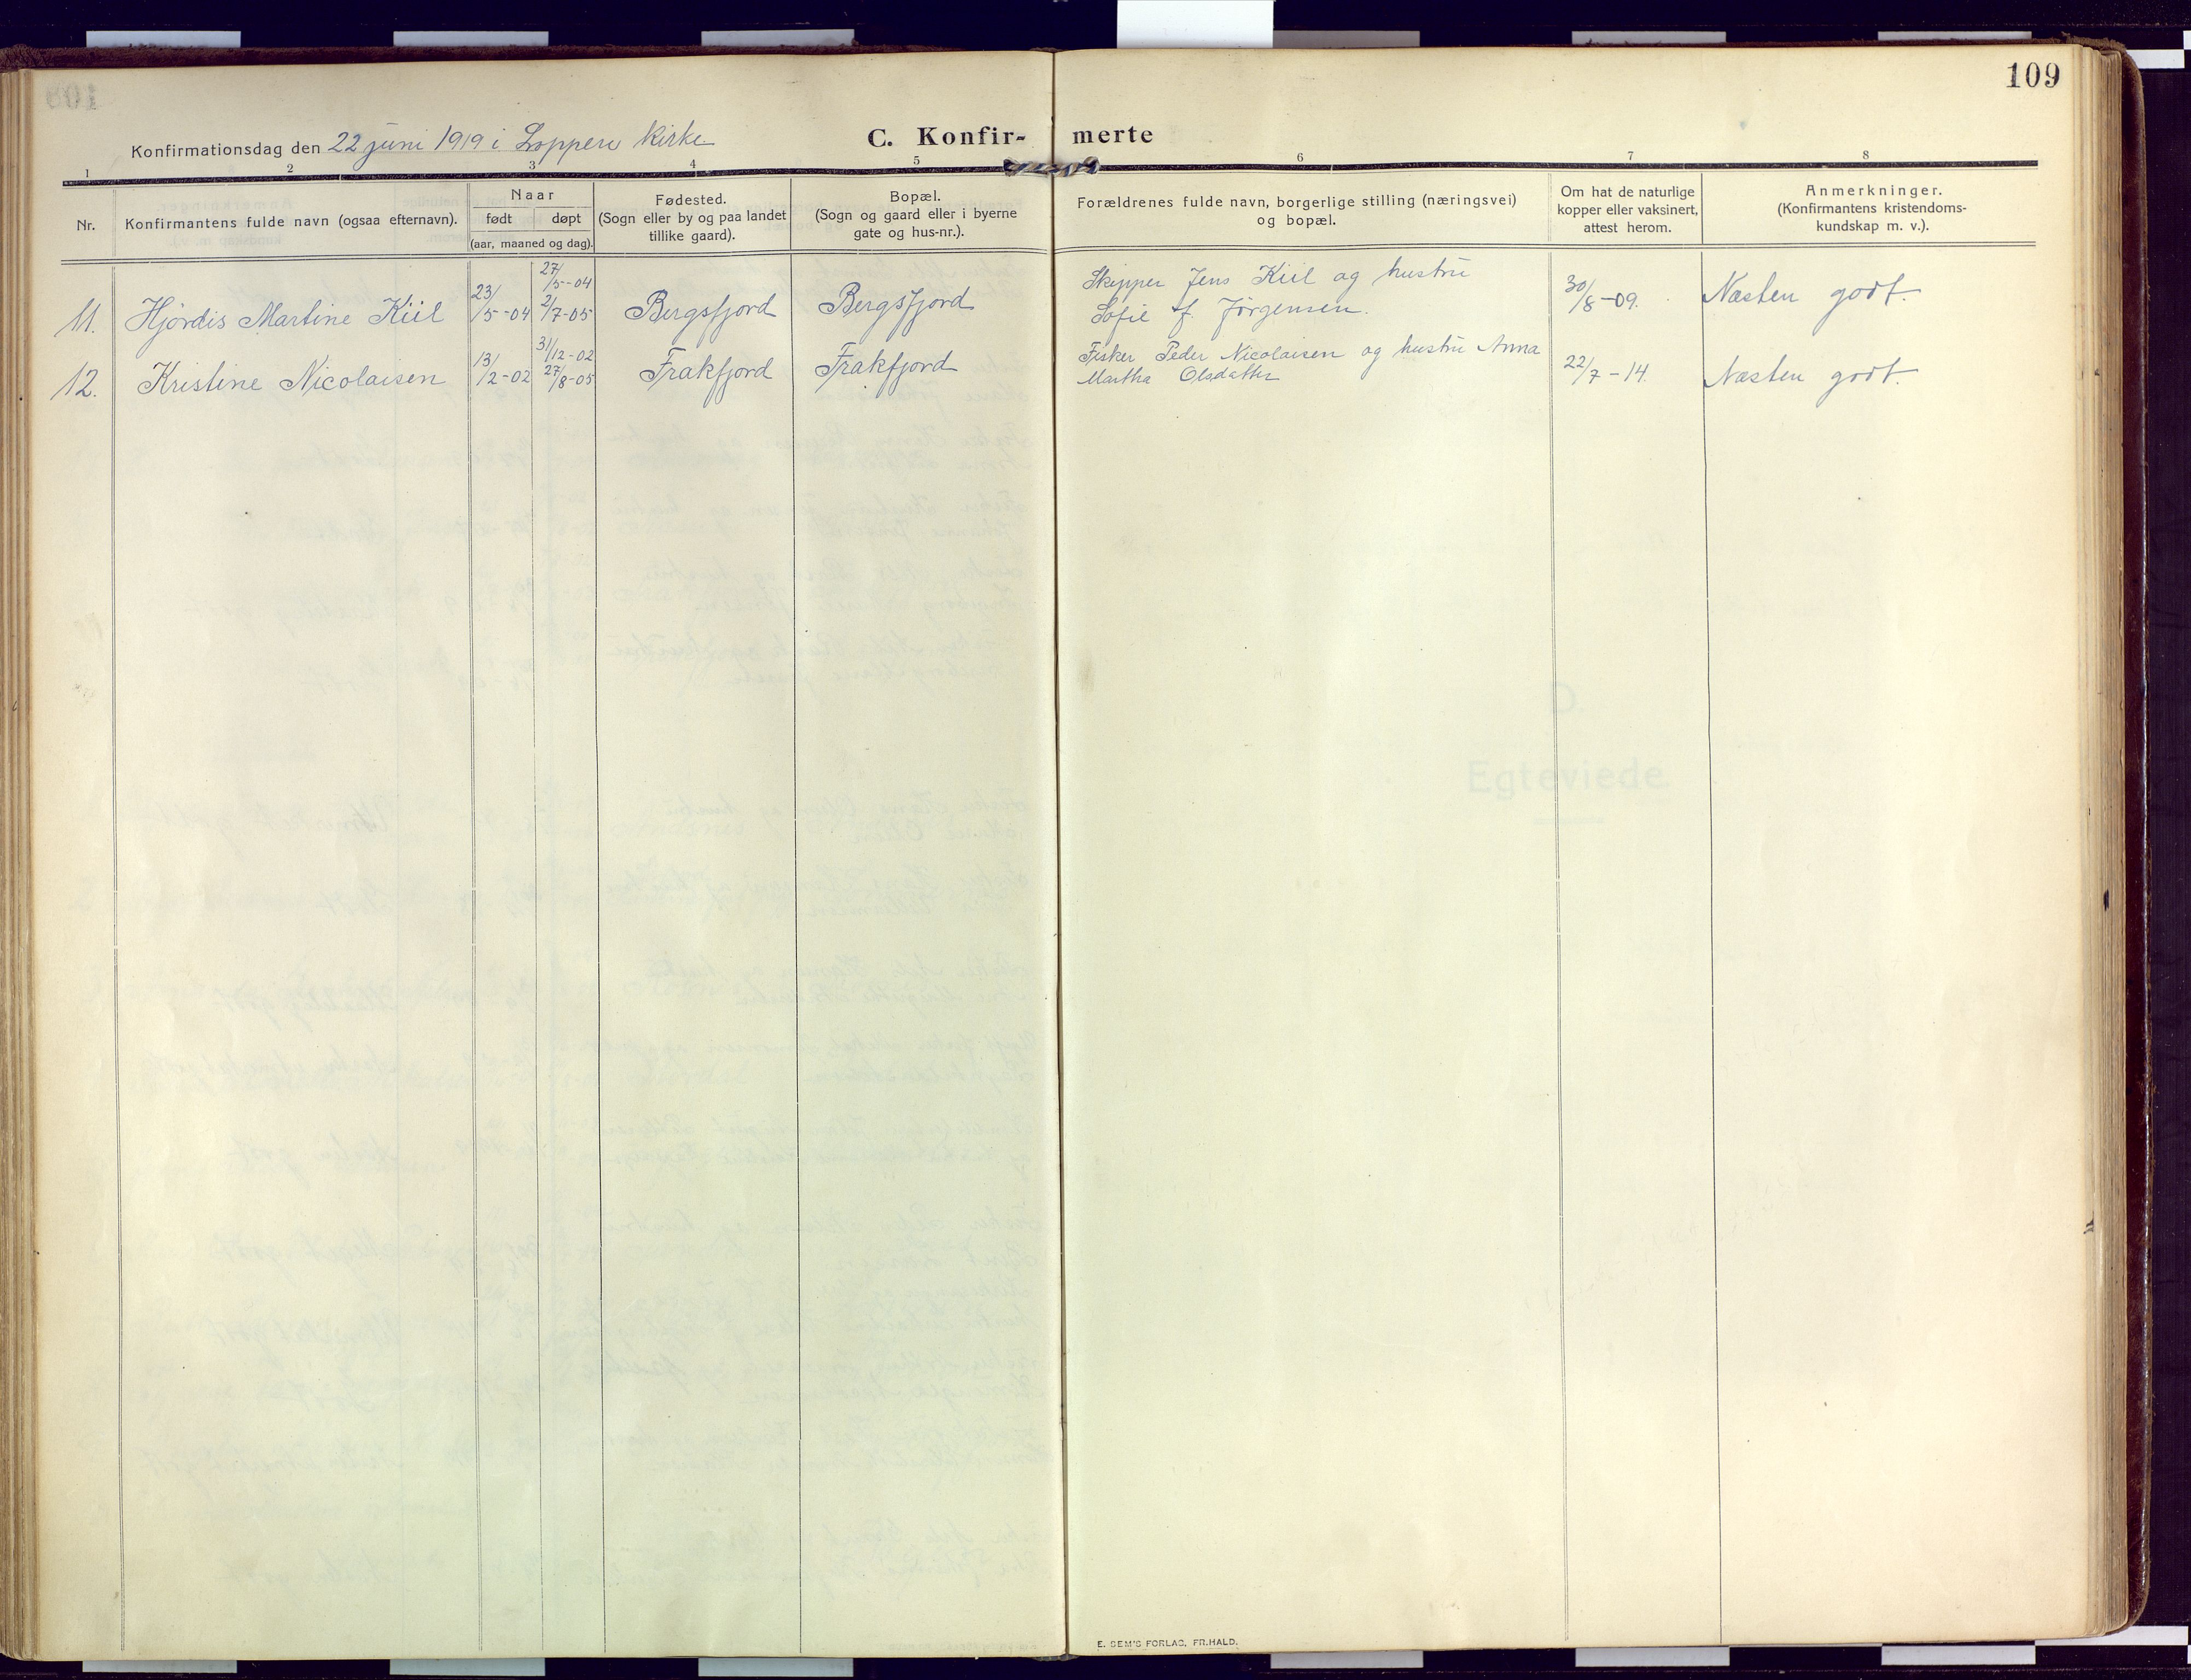 109
Konfirmationsdag den 22 juni 1919 i Loppen Kirke
C. Konfir- merte
1 2 3 4 5 6 7 8
Nr.
Konfirmantens fulde navn (ogsaa efternavn).
Naar
født døpt
(aar, maaned og dag).
Fødested.
(Sogn eller by og paa landet
tillike gaard).
Bopæl.
(Sogn og gaard eller i byerne
gate og hus-nr.).
Forældrenes fulde navn, borgerlige stilling (næringsvei)
og bopæl.
Om hat de naturlige
kopper eller vaksinert,
attest herom.
Anmerkninger.
(Konfirmantens kristendoms-
kundskap m. v.).
11. Hjørdis Martine Kiil 23/5-04 27/5-04 2/7-05 Bergsfjord Bergsfjord
Skipper Jens Kiil og hustru
Sofie f. Jørgensen.
30/8-09. Næsten godt.
12. Kristine Nicolaisen 13/2-02 31/12-02 27/8-05 Frakfjord Frakfjord
Fisker Peder Nicolaisen og hustru Anna
Martha Olsdatter
22/7-14. Næsten godt.
D.
Egteviede.
E. SEM'S FORLAG, FR.HALD.